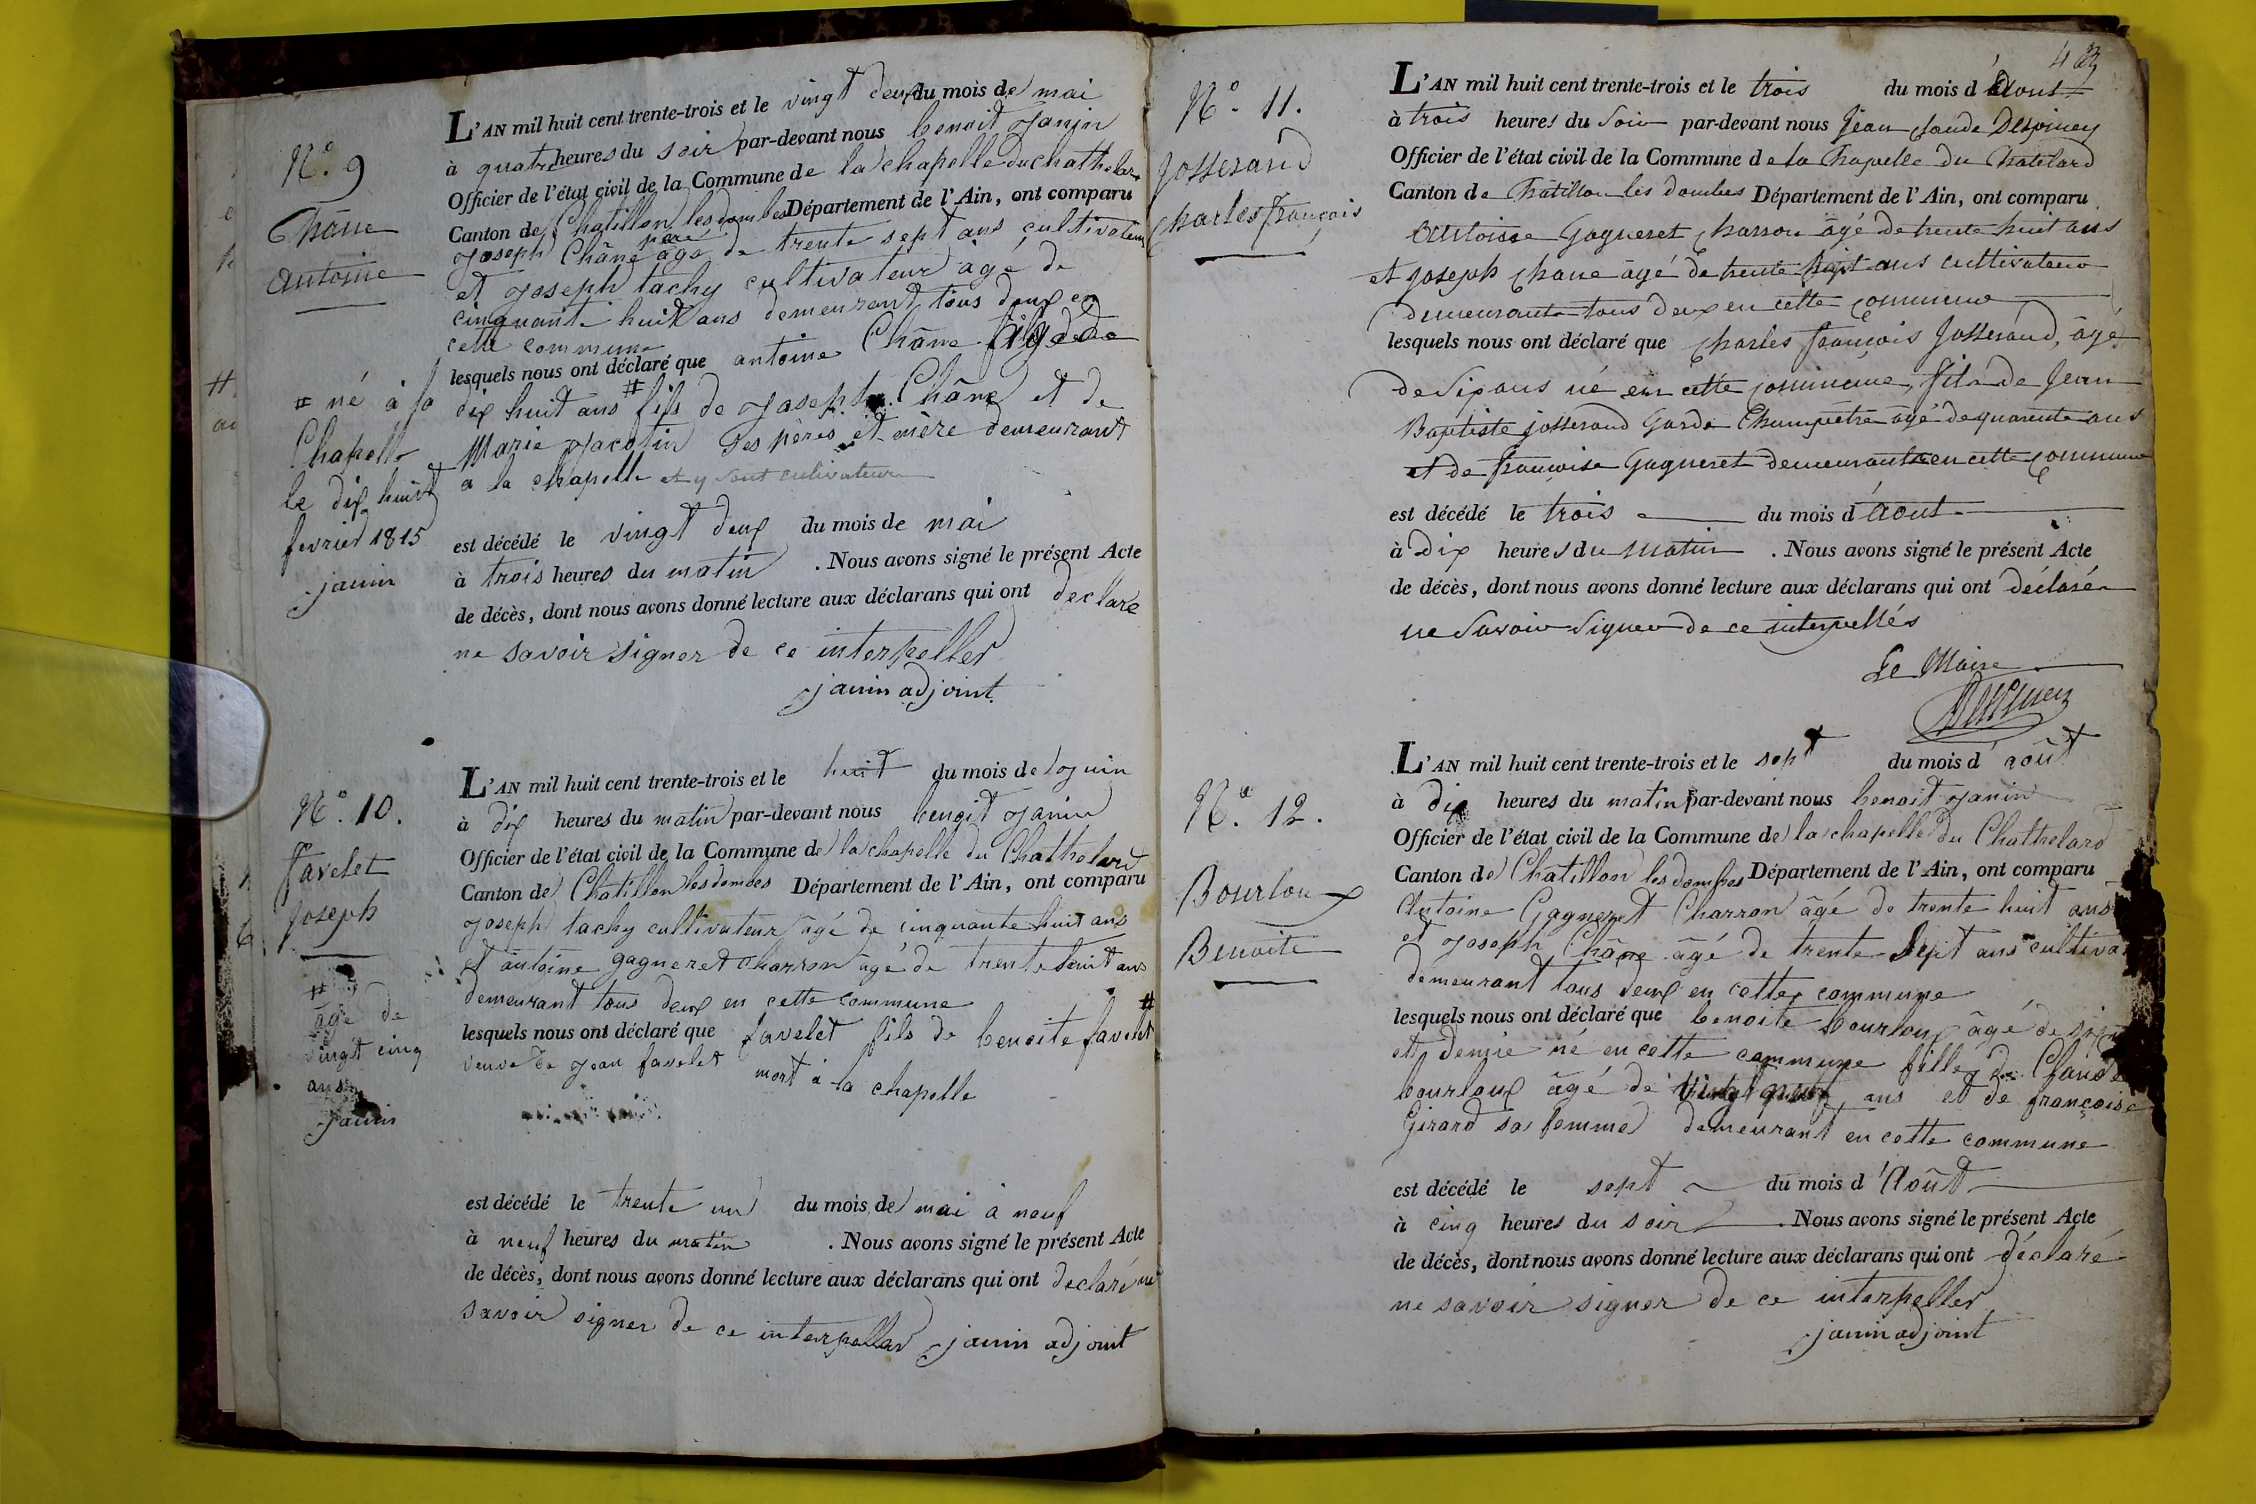 N.° 9
Châne
Antoine
# né à la
Chapelle
le dix huit
fevrier 1815
janin
L'AN mil huit cent trente-trois et le vingt deux du mois de mai
à quatre heures du soir par-devant nous benoit Janin
Officier de l'état civil de la Commune de la chapelle du chathelard
Canton de Chatillon les dombes Département de l'Ain, ont comparu
père
Joseph Châne âgé de trente sept ans cultivateur
et Joseph tachy cultivateur âgé de
cinquante huit ans demeurant tous deux en
cette commune
lesquels nous ont déclaré que antoine Châne âgé de
dix huit ans # fils de Joseph Châne et de
Marie Jacotin ses pères et mère demeurant
a la chapelle et y sont cultivateur
est décédé le vingt deux du mois de mai
à trois heures du matin . Nous avons signé le présent Acte
de décès, dont nous avons donné lecture aux déclarans qui ont declaré
ne savoir signer de ce interpeller
janin adjoint
N.° 10.
Favelet
Joseph
#
âgé de
vingt cinq
ans
janin
L'AN mil huit cent trente-trois et le huit du mois de Juin
à dix heures du matin par-devant nous benoit Janin
Officier de l'état civil de la Commune de la chapelle du Chathelard
Canton de Chatillon les dombes Département de l'Ain, ont comparu
Joseph tachy cultivateur âgé de cinquante huit ans
et antoine gagneret charron âgé de trente huit ans
demeurant tous deux en cette commune #
lesquels nous ont déclaré que favelet fils de benoite favelet
veuve de Jean favelet mort à la chapelle
est décédé le trente un du mois de mai à neuf
à neuf heures du matin . Nous avons signé le présent Acte
de décès, dont nous avons donné lecture aux déclarans qui ont declaré ne
savoir signer de ce interpeller janin adjoint
N.° 11.
Josserand
Charles françois
L'AN mil huit cent trente-trois et le trois du mois d'Aout
à trois heures du Soir par-devant nous Jean Claude Despiney
Officier de l'état civil de la Commune de la Chapelle du Chatelard
Canton de Châtillon les dombes Département de l'Ain, ont comparu
Antoine Gagneret Charron âgé de trente huit ans
et Joseph Chane âgé de trente Sept ans cultivateur
demeurants tous deux en cette commune
lesquels nous ont déclaré que Charles françois Josserand, âgé
de Six ans né en cette commune, fils de Jean
Baptiste josserand Garde Champêtre âgé de quarante ans
et de françoise Gagneret demeurants en cette Commune
est décédé le trois du mois d'Aout
à Dix heures du Matin . Nous avons signé le présent Acte
de décès, dont nous avons donné lecture aux déclarans qui ont déclaré
ne Savoir Signer de ce interpellés
Le Maire
Despiney
N.° 12.
Bourloux
Benoite
L'AN mil huit cent trente-trois et le sept du mois d'août
à dix heures du matin par-devant nous benoit Janin
Officier de l'état civil de la Commune de la chapelle du Chathelard
Canton de Chatillon les dombes Département de l'Ain, ont comparu
Antoine Gagneret Charron âgé de trente huit ans
et Joseph Châne âgé de trente sept ans cultiva
demeurant tous deux en cette commune
lesquels nous ont déclaré que benoite bourloux âgé de
et demie né en cette commune fille de Claude
bourloux âgé de ans et de françoise
Girard sa femme demeurant en cette commune
est décédé le sept du mois d'Août
à cinq heures du soir . Nous avons signé le présent Acte
de décès, dont nous avons donné lecture aux déclarans qui ont déclaré
ne savoir signer de ce interpeller
janin adjoint